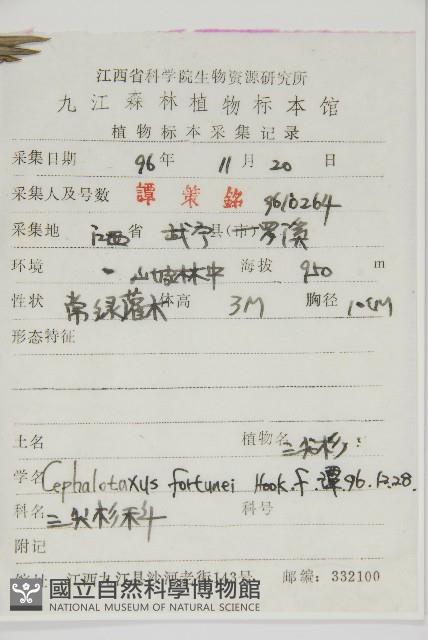 江西省科学院生物资源研究所
九江森林植物标本馆
植物标本采集记录
采集日期 96年 11月 20日
采集人及号数 譚策銘 9610264
采集地 江西省 武宁县(市)罗溪
环境 山坡林中 海拔 950 m
性状 常绿灌木 体高 3M 胸径 10cM
形态特征
土名 植物名 三尖杉
学名 Cephalotaxus fortunei Hook.f. 譚 96.12.28.
科名 三尖杉科 科号
附记
馆址:江西九江县沙河老街143号 邮编:332100
國立自然科學博物館
NATIONAL MUSEUM OF NATURAL SCIENCE